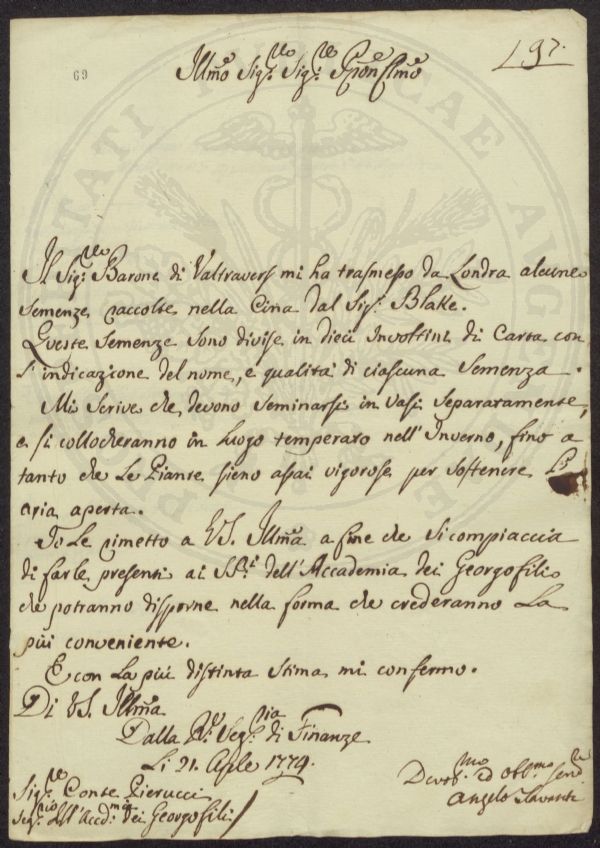 69
197.
Illmo Sigre Sigre Pron Clmo
Il Sigre Barone di Valtravers mi ha trasmesso da Londra alcune
semenze raccolte nella Cina dal Sigr Blake.
Queste semenze sono divise in dieci Involtini di Carta con
l'indicazione del nome, e qualità di ciascuna semenza.
Mi scrive che devono seminarsi in Vasi separatamente,
e si collocheranno in luogo temperato nell'Inverno, fino a
tanto che le Piante sieno assai vigorose per sostenere l'
aria aperta.
Io le rimetto a VS. Illma a fine che si compiaccia
di farle presenti ai SSri dell'Accademia dei Georgofili
che potranno disporne nella forma che crederanno la
più conveniente.
E con la più distinta stima mi confermo.
Di VS. Illma
Dalla Rl Segria di Finanze
Li 21. Aprle 1779.
Sigre Conte Pierucci
Segrio dell'Accdmia dei Georgofili
Devotmo ed Obbmo Serre
Angelo Tavanti
PUBLICAE